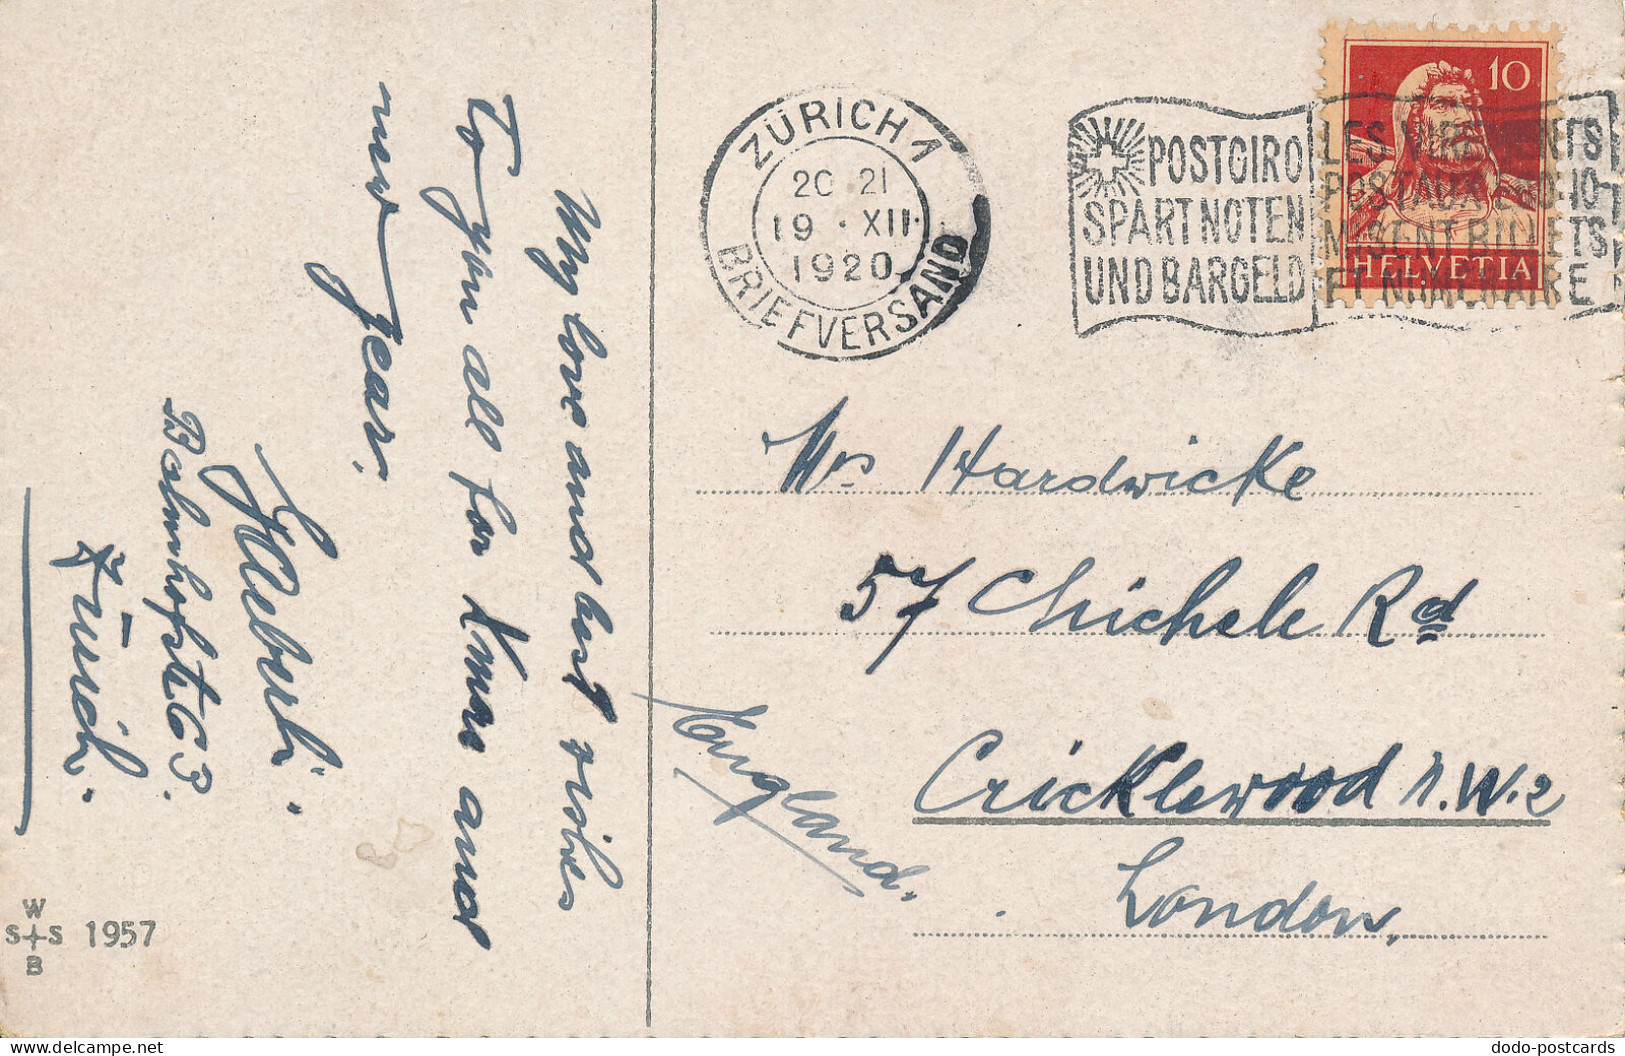 My love and best wishes
To you all for Xmas and
new year.
Bahnhofstr 63.
Zürich.
W
S+S 1957
B
ZÜRICH 1
20 21
19 · XII
1920
BRIEFVERSAND
POSTGIRO
SPART NOTEN
UND BARGELD
LES VIREMENTS
POSTAUX ECONO
MISENT BILLETS
ET NUMERAIRE
10
HELVETIA
Mrs Hardwicke
57 Chichele Rd
Cricklewood N.W.2
London.
England.
dodo-postcards